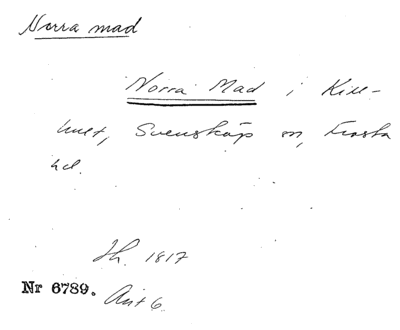 Norra mad
Norra Mad i Kill-
hult, Svensköp sn, Frosta
hd.
Sk. 1817
Nr 6789.
Akt 6